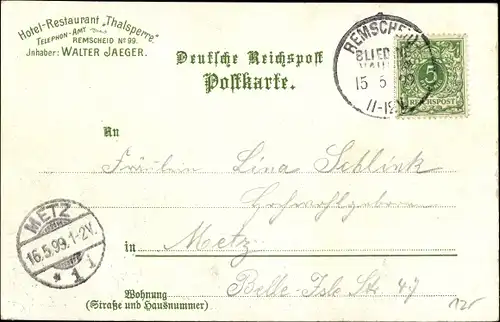 Hotel-Restaurant "Thalsperre"
TELEPHON-AMT REMSCHEID № 99.
Jnhaber: WALTER JAEGER.
Deutsche Reichspost
Postkarte.
REMSCHEID
15 5 99
11-12V.
5
REICHSPOST
An
Fräulein Lina Schlink
Hochwohlgeboren
in Metz
Belle-Isle Str. 47
METZ
16.5.99.1-2V.
* 1 i
Wohnung
(Straße und Hausnummer)